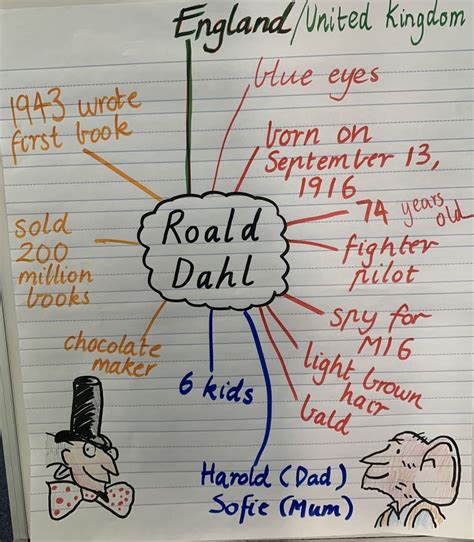 England/United Kingdom
blue eyes
1943 wrote
first book
born on
September 13,
1916
74 years
old
Roald
Dahl
sold
200
million
books
fighter
pilot
spy for
MI6
chocolate
maker
light brown
hair
6 kids
bald
Harold (Dad)
Sofie (Mum)